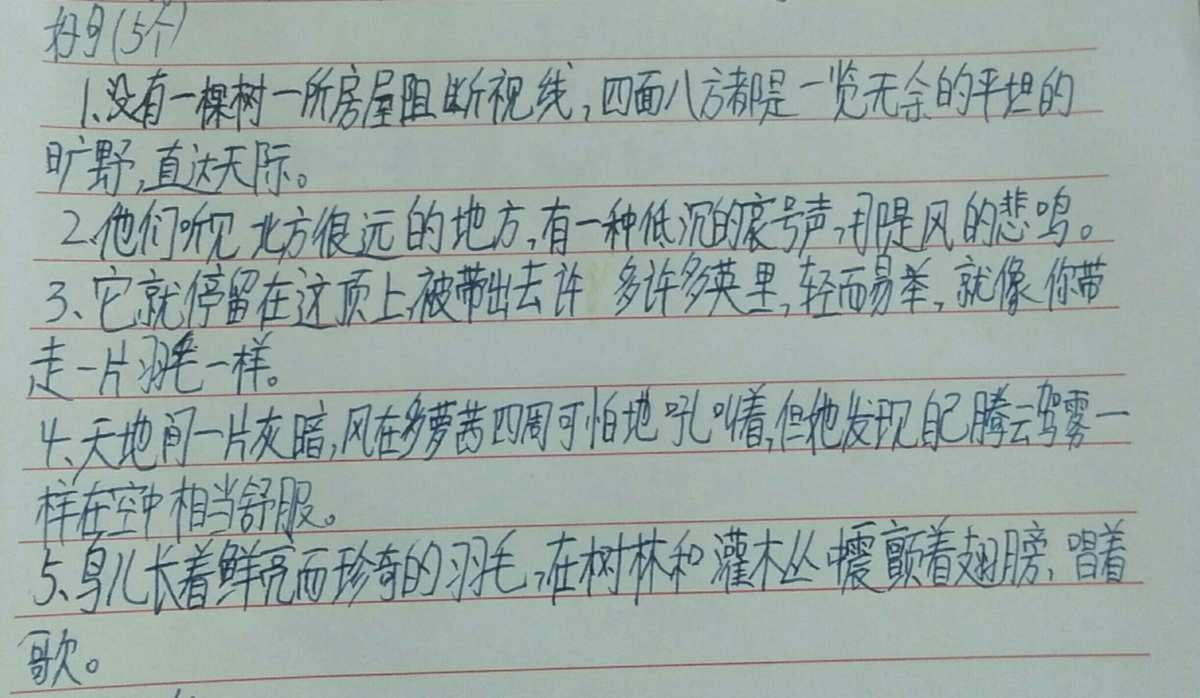 好句(5个)
1、没有一棵树一所房屋阻断视线,四面八方都是一览无余的平坦的
旷野,直达天际。
2、他们听见北方很远的地方,有一种低沉的哀号声,那是风的悲鸣。
3、它就停留在这顶上,被带出去许多许多英里,轻而易举,就像你带
走一片羽毛一样。
4、天地间一片灰暗,风在多萝茜四周可怕地吼叫着,但她发现自己腾云驾雾一
样在空中相当舒服。
5、鸟儿长着鲜亮而珍奇的羽毛,在树林和灌木丛中震颤着翅膀、唱着
歌。